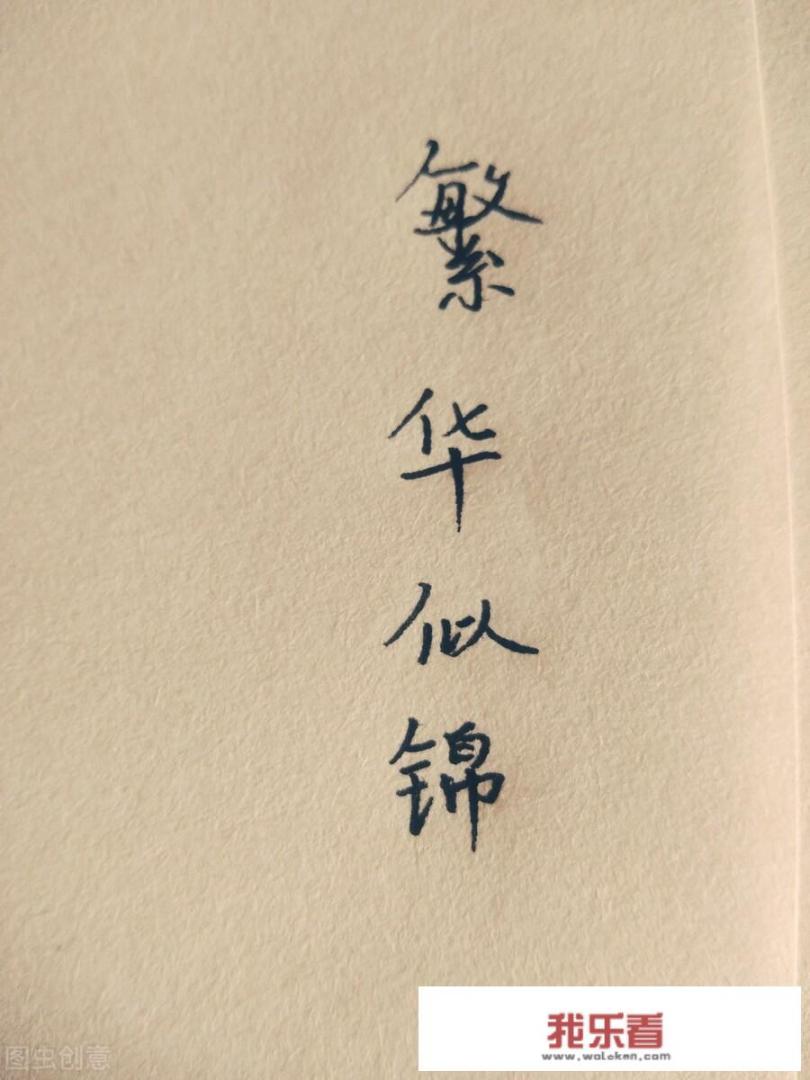 繁华似锦
我乐看
www.woleken.com
图虫创意